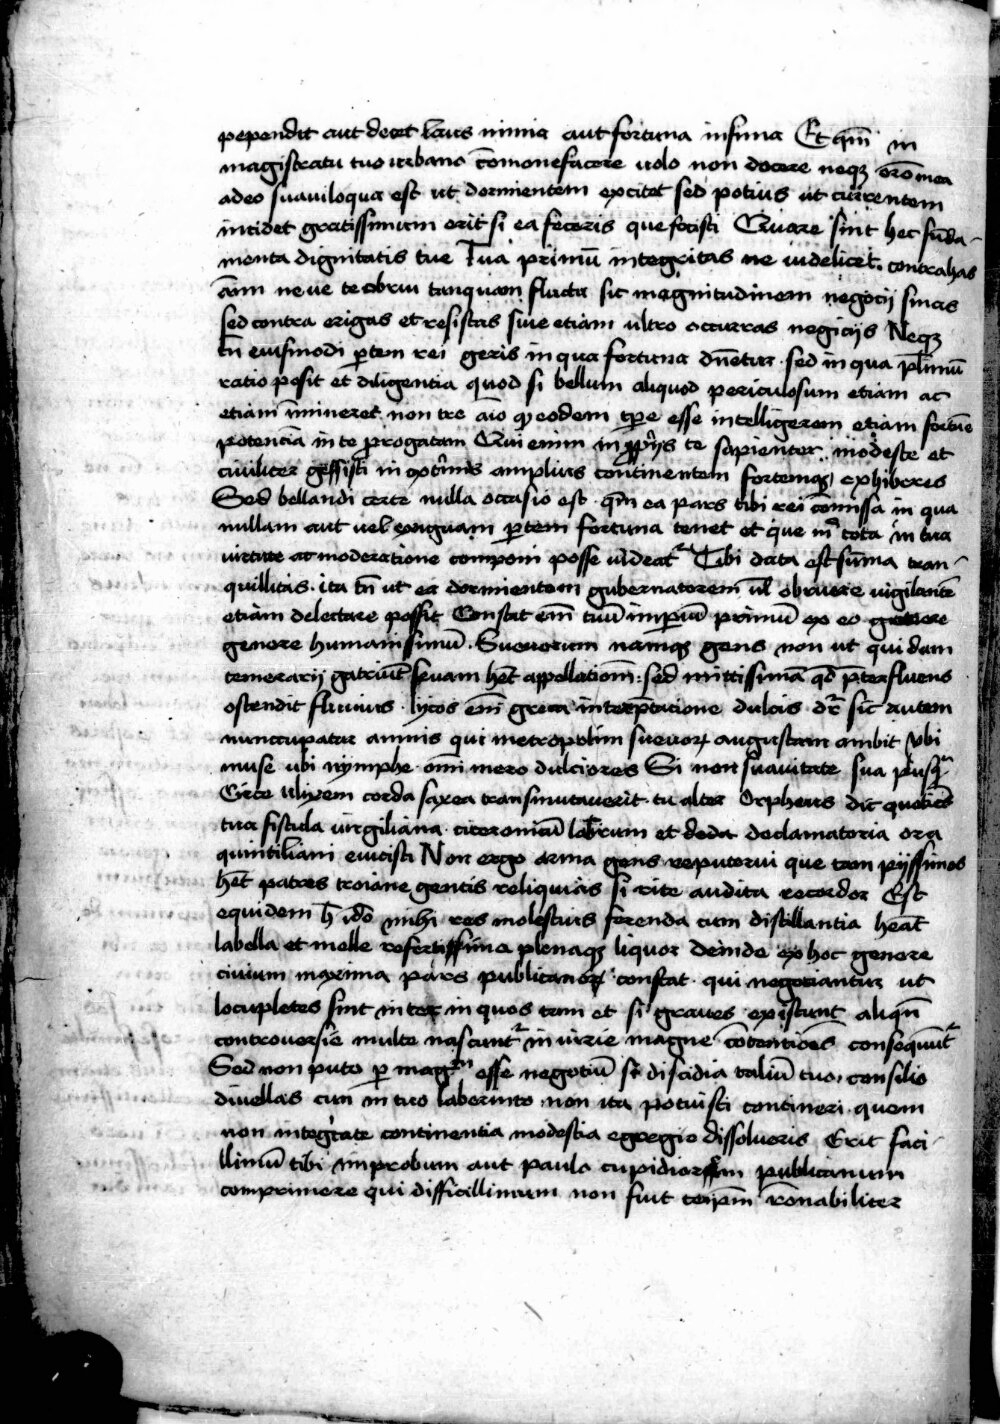 pependit aut deest laus nimia aut fortuna infima Et qm̄ in
magistratu tuo urbano cōmonefacere uolo non docere neqꝫ orō mea
adeo suauiloqua est ut dormientem excitet sed potius ut currentem
incidet gratissimum erit si ea feceris que fecisti Quare sint hec fūda-
menta dignitatis tue Tua primū integritas ne uidelicet contrahas
aīm neue te obrui tanquam fluctu sic magnitudinem negocij sinas
sed contra erigas et resistas siue etiam ultro occurras negicijs Neqꝫ
tn̄ eiusmodi ꝑtem rei geris in qua fortuna dn̄etur sed in qua plīmū
ratio posit et diligentia quod si bellum aliquod periculosum etiam ac
etiam īmineret non tre aīo qꝫ eodem tꝑe esse intelligerem etiam fortūe
potencīa in te progatam Qui enim in te sapienter modeste et
ciuiliter gessisti in amplius continentem fortemqꝫ exhiberes
Sed bellandi certe nulla occasio est qm̄ ea pars tibi rei cōmissa in qua
nullam aut uel exiguam ꝑtem fortuna tenet et que tota in tua
uirtute ac moderatione componi posse uideatr Tibi data est sūma tran-
quillitas ita tn̄ ut ea dormientem gubernatorem ul̄ obruere uigilantē
etiam delectare possit Constat em̄ tuū imꝑiū primū ex eo
genere humanissimū Sueuorum namqꝫ gens non ut quidam
temerarij gatriūt seuam hēt appellationē sed mittissimā qd̄ p̄terfluens
ostendit fluuius lycos em̄ greca interp̄tatione dulcis dr̄ sic autem
nunccupatur amnis qui metropolim sueuoꝝ augustam ambit vbi
muse ubi nymphe om̄i mero dulciores Si non suauitate sua
Circe Ulixem corda saxea transmutauerit tu alter Orpheus dic quoties
tua fistula uirgiliana ciceronicū labrum et deda declamatoria ora
quintiliani euicisti Non ergo arma gens reputerui que tam pijssimos
hēt patres troiane gentis reliquias si rite audita recordor Est
equidem h̄ idō mihi res molestius ferenda cum distillantia heāt
labella et melle refertissima plenaqꝫ liquor deinde ex hoc genere
ciuium maxima pars publicanoꝝ constat qui negotiantur ut
locupletes sint inter in quos tam et si graues existunt aliqn̄
controuersie multe nascuntr iniurie magne cōtentiōes consequūtr
Sed non puto ꝑ magn esse negotiū si discidia taliū tuo consilio
diuellas cum in tuo laberinto non ita potuisti contineri quem
non integ̓tate continentia modestia egregie dissolueris Erit faci-
llimū tibi improbum aut paulo cupidiorem publicanum
comprimere qui difficillimum non fuit rōnabiliter